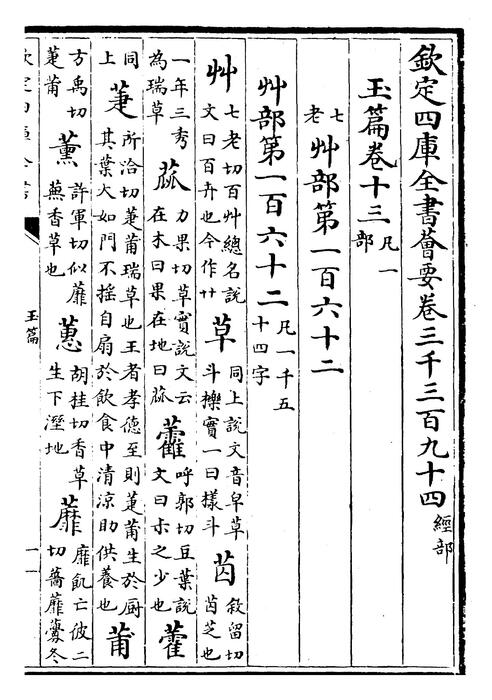 欽定四庫全書薈要卷三千三百九十四 經部
玉篇卷十三 凡一部
艸部第一百六十二 七老
艸部第一百六十二 凡一千五十四字
艸 七老切百艸總名說文曰百卉也今作艹 草 同上說文音阜草斗櫟實一曰樣斗 苬 敘留切苬芝也
一年三秀為瑞草 蓏 力果切草實說文云在木曰果在地曰蓏 藿 呼郭切豆葉說文曰尗之少也 藿
同上 萐 所洽切萐莆瑞草也王者孝德至則萐莆生於厨其葉大如門不搖自扇於飲食中清涼助供養也 莆
方禹切萐莆 薰 許軍切似蘼蕪香草也 蕙 胡挂切香草生下溼地 蘼 靡飢亡彼二切薔蘼虋冬
玉篇
一